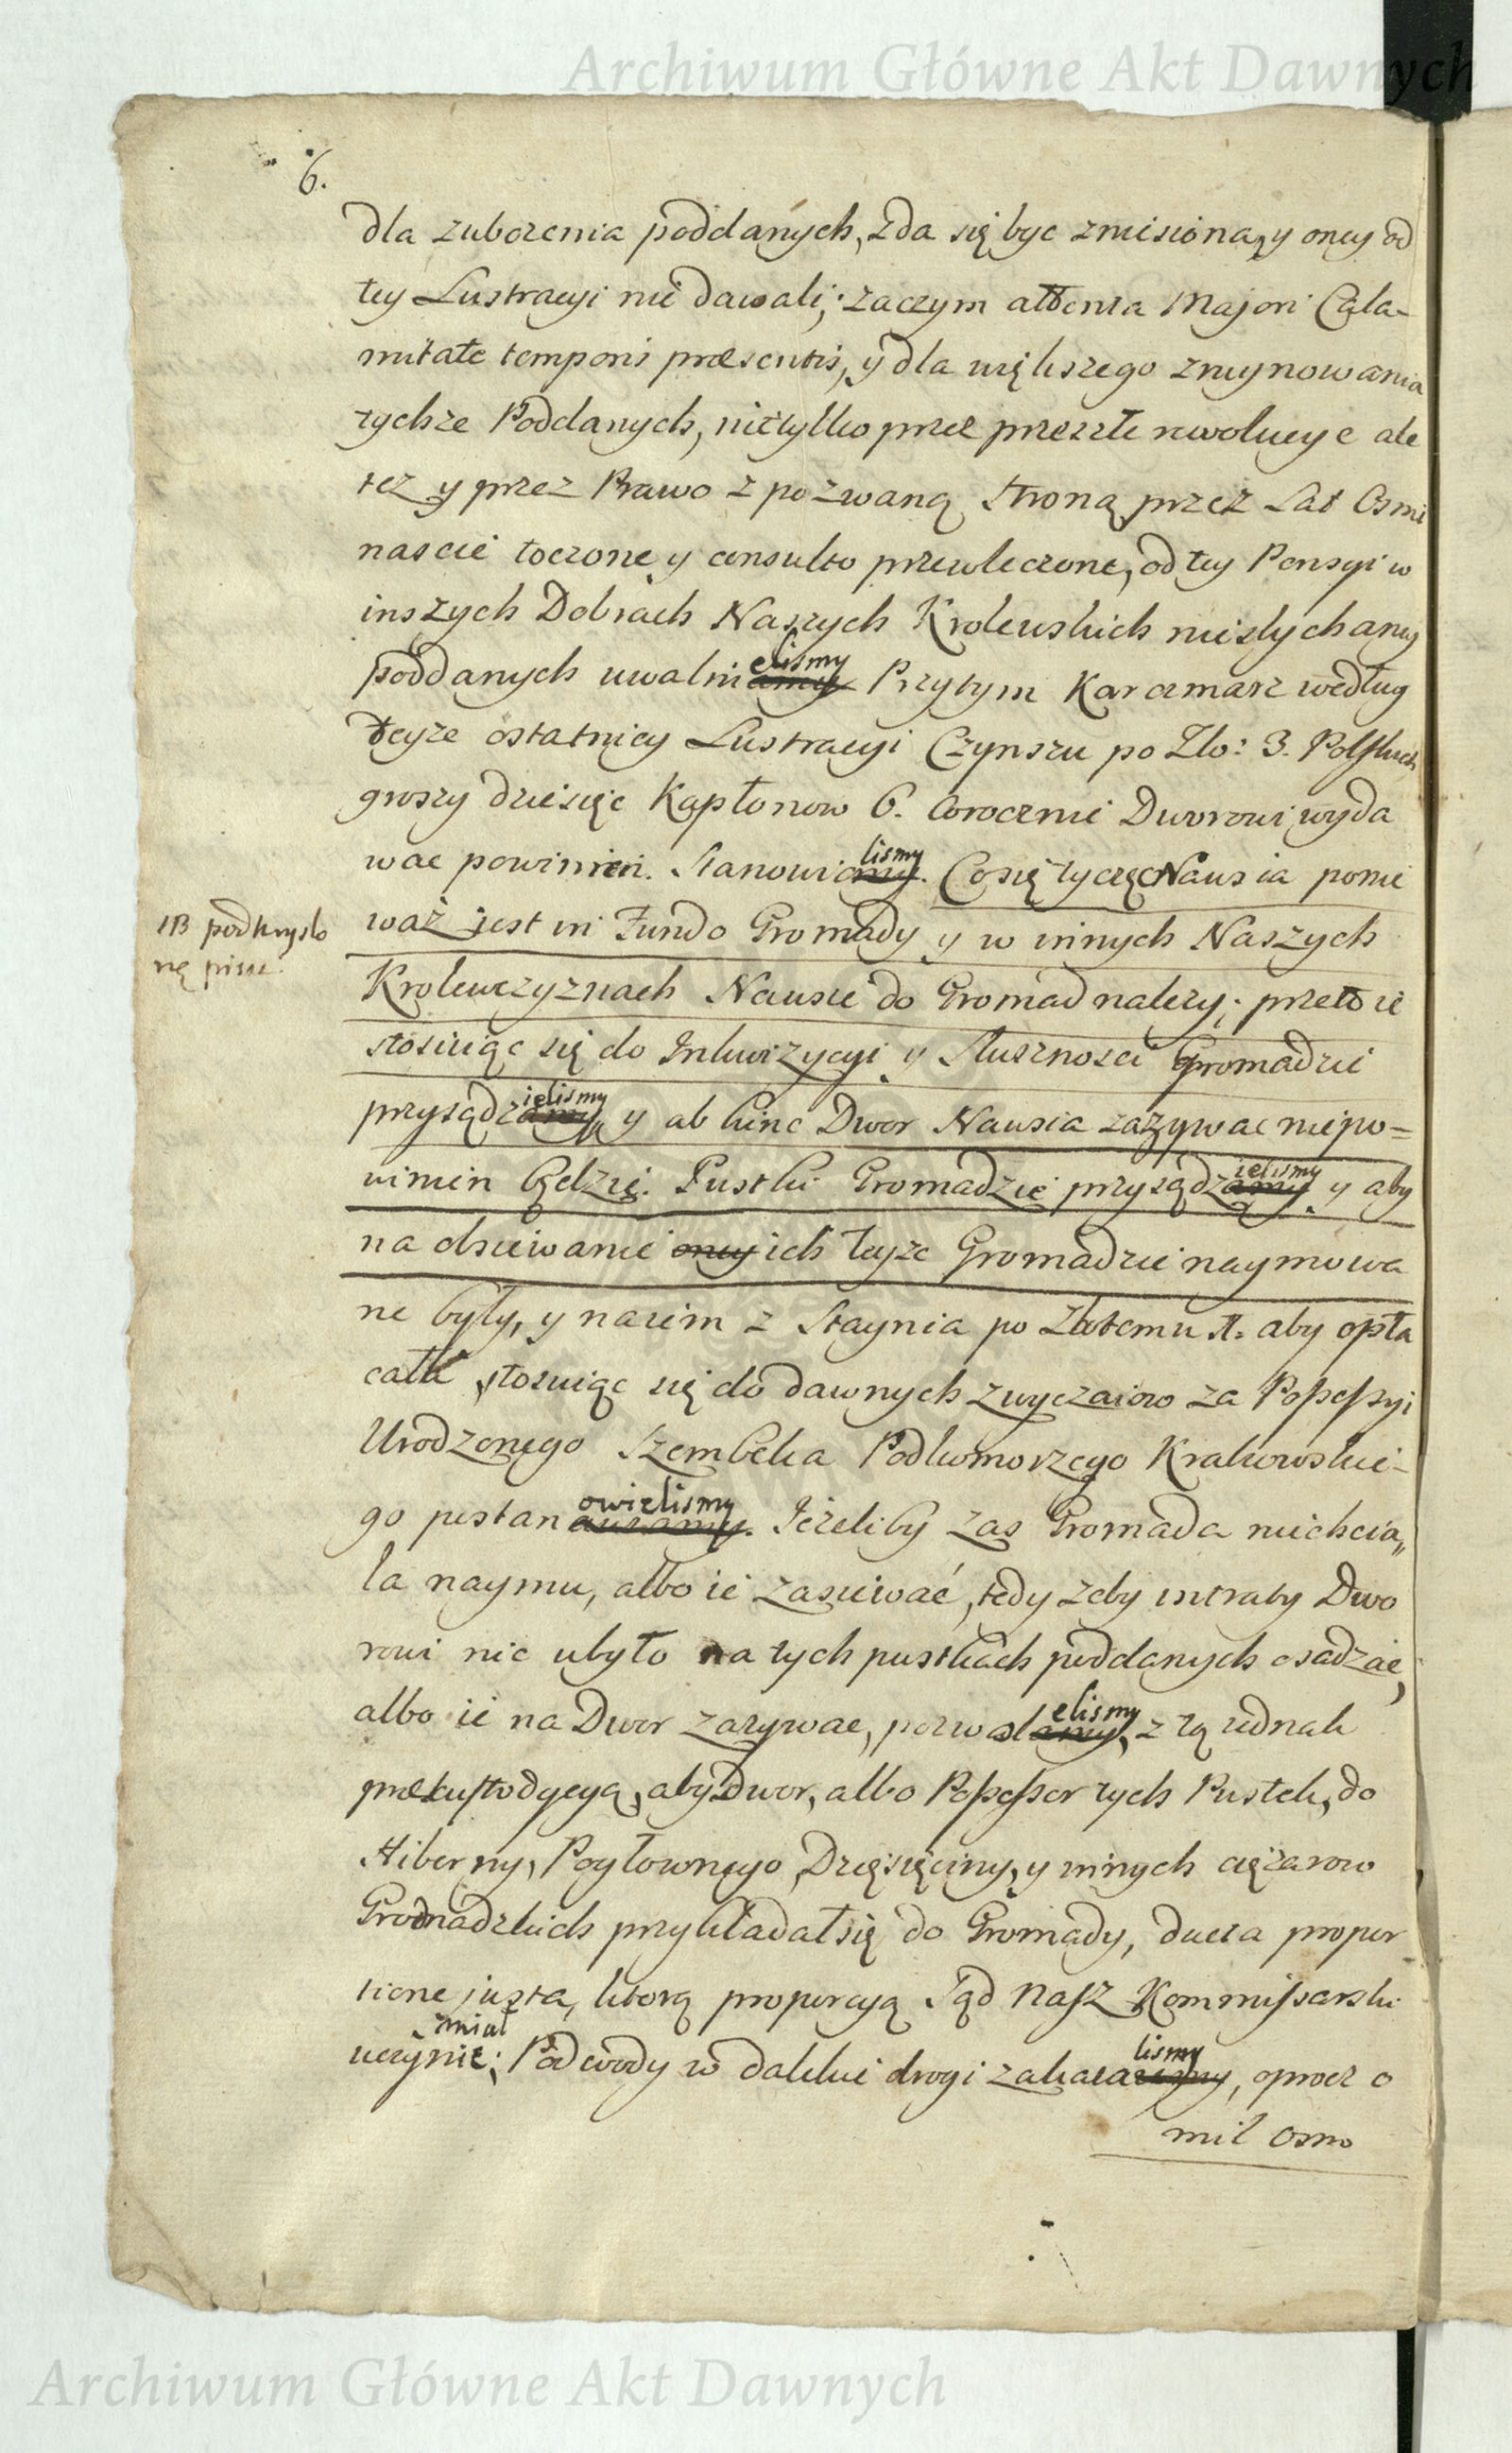 Archiwum Główne Akt Dawnych
6.
dla zubozenia poddanych, zda się byc zniesiona, y oney od
tey Lustracyi nie dawali; zaczym attenta Majori Cala-
mitate temporis præsentis, y dla większego zruynowania
tychze Poddanych, nietylko przez przeszłe rewolucye ale
tez y przez Prawo z pozwaną Stroną przez Lat Osmi
nascie toczone y consulto przewleczone, od tey Pensyi w
inszych Dobrach Naszych Krolewskich niesłychaney
poddanych uwalniamy elismy Przytym Karczmarz według
teyze ostatniey Lustracyi Czynszu po Zło: 3. Polskich
groszy dziesięc Kapłonow 6. corocznie Dworowi wyda
wac powinien. Stanowiemy lismy. Co się tycze Nawsia ponie
waż jest in Fundo Gromady y w innych Naszych
NB podkryslo
ne pisac.
Krolewczyznach Nawsie do Gromad nalezy; przeto ie
stosuiąc się do Inkwizycyi y Słusznosci Gromadzie
przysądzamy ielismy, y ab hinc Dwor Nawsia zazywac niepo=
winien będzie. Pustki Gromadzie przysądzamy ielismy y aby
na dsiewanie oney ich teyze Gromadzie naymowa
ne były, y naiem z Staynia po Złotemu 1. aby opła
cała, stosuiąc się do dawnych zwyczaiow za Possessyi
Urodzonego Szembeka Podkomorzego Krakowskie-
go postanawiamy owielismy. Jeżeliby zas Gromada niechcia„
ła naymu, albo ie zasiewać, tedy zeby intraty Dwo
rowi nie ubyło na tych pustkach poddanych osadzac,
albo ie na Dwor zazywac, pozwalamy elismy, z tą iednak
præcustodycyą, aby Dwor, albo Possessor tych Pustek, do
Hiberny, Pogłownego, Dziesięciny, y innych cięzarow
Gromadzkich przykładał się do Gromady, ducta propor
tione justa, ktorą proporcyą Sąd Nasz Kommissarski
uczynic miał; Podwody w dalekie drogi zakazaliemy lismy, oprocz o
mil osmo
Archiwum Główne Akt Dawnych